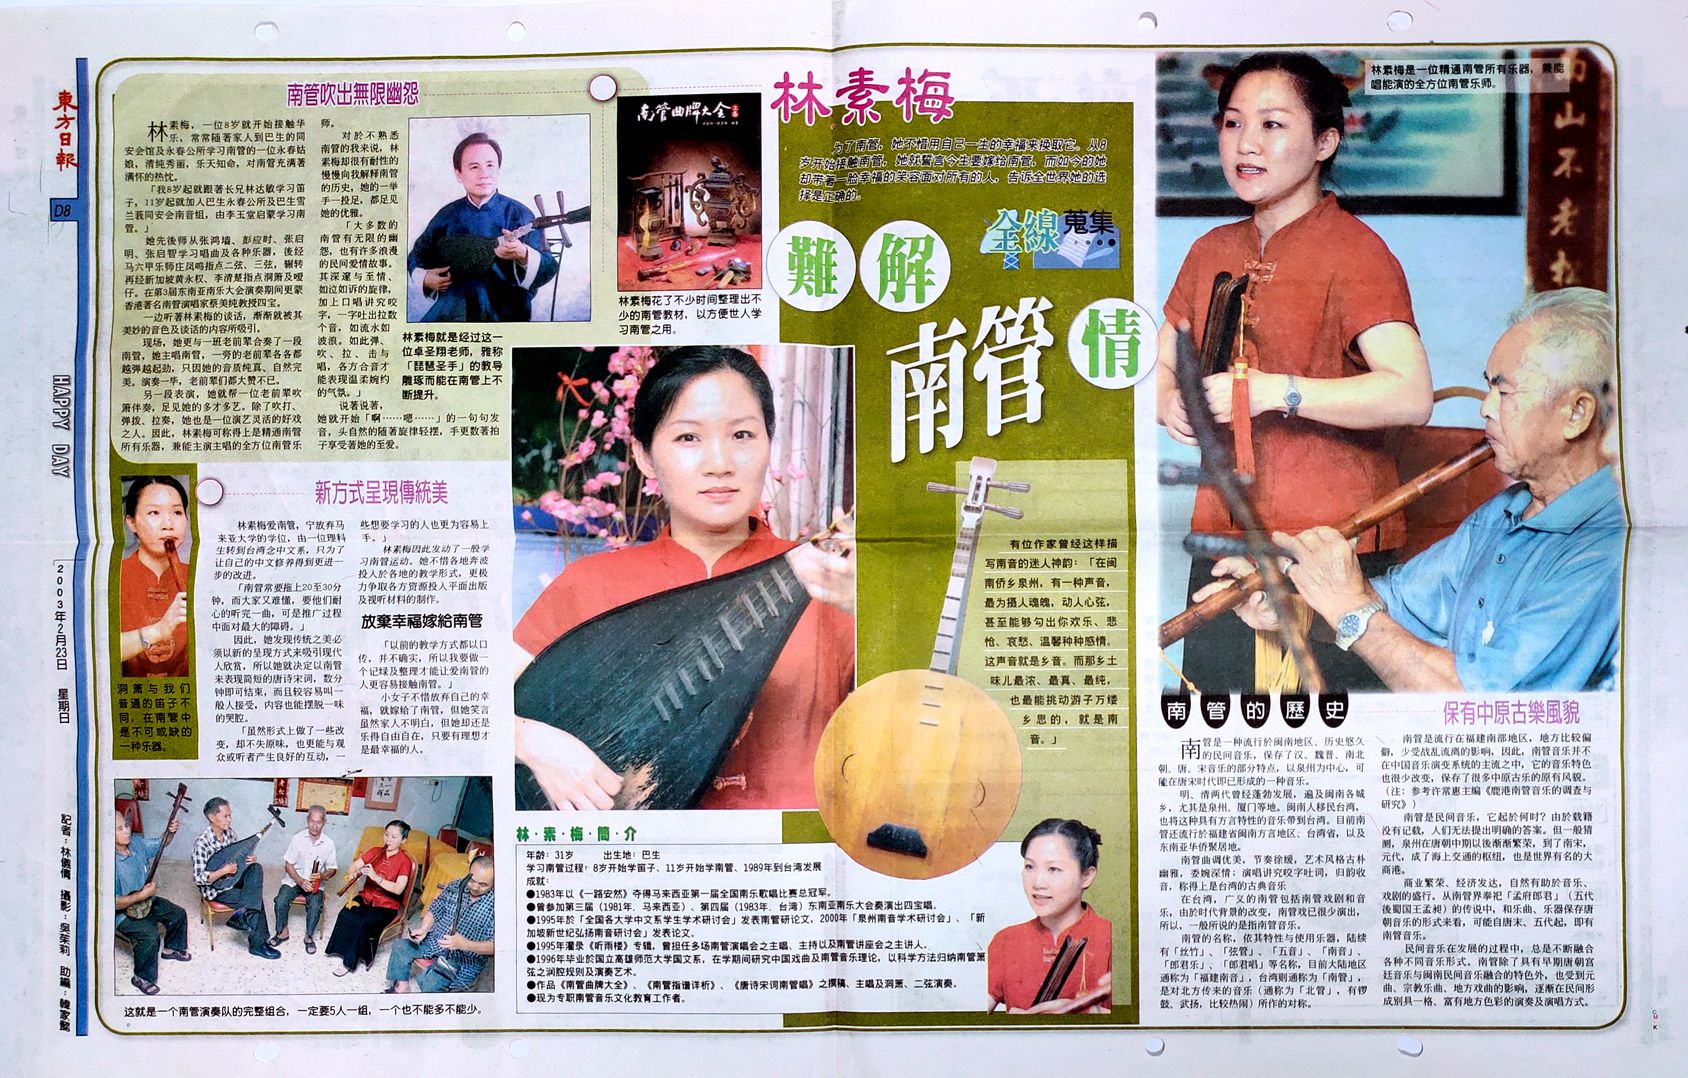 東方日報
D8
HAPPY DAY
2003年2月23日 星期日
南管吹出無限幽怨
林素梅，一位8岁就开始接触华
乐，常常随著家人到巴生的同
安会馆及永春公所学习南管的一位永春姑
娘，清纯秀丽，乐天知命，对南管充满著
满怀的热忱。
「我8岁起就跟著长兄林达敏学习笛
子，11岁起就加入巴生永春公所及巴生雪
兰莪同安会南音组，由李玉堂启蒙学习南
管。」
她先後师从张鸿墙、彭应时、张启
明、张启智学习唱曲及各种乐器，後经
马六甲乐师庄凤鸣指点二弦、三弦，辗转
再经新加坡黄永权、李清楚指点洞箫及嗳
仔。在第3届东南亚南乐大会演奏期间更蒙
香港著名南管演唱家蔡美纯教授四宝。
一边听著林素梅的谈话，渐渐就被其
美妙的音色及谈话的内容所吸引。
现场，她更与一班老前辈合奏了一段
南管，她主唱南管，一旁的老前辈各各都
越弹越起劲，只因她的音质纯真、自然完
美。演奏一毕，老前辈们都大赞不已。
另一段表演，她就帮一位老前辈吹
箫伴奏，足见她的多才多艺。除了吹打、
弹拨、拉奏，她也是一位演艺灵活的好戏
之人。因此，林素梅可称得上是精通南管
所有乐器，兼能主演主唱的全方位南管乐
师。
对於不熟悉
南管的我来说，林
素梅却很有耐性的
慢慢向我解释南管
的历史，她的一举
手一投足，都足见
她的优雅。
「大多数的
南管有无限的幽
怨，也有许多浪漫
的民间爱情故事。
其深邃与至情、
如泣如诉的旋律，
加上口唱讲究咬
字，一字吐出拉数
个音，如流水如
波浪。如此弹、
吹、拉、击与
唱，各方合音才
能表现温柔婉约
的气氛。」
说著说著，
她就开始「啊……嗯……」的一句句发
音，头自然的随著旋律轻摆，手更数著拍
子享受著她的至爱。
林素梅就是经过这一
位卓圣翔老师，雅称
「琵琶圣手」的教导
雕琢而能在南管上不
断提升。
南管曲牌大全
林素梅花了不少时间整理出不
少的南管教材，以方便世人学
习南管之用。
林素梅
为了南管，她不惜用自己一生的幸福来换取它。从8
岁开始接触南管，她就誓言今生要嫁给南管。而如今的她
却带著一脸幸福的笑容面对所有的人，告诉全世界她的选
择是正确的。
全線蒐集
難解
南管
情
有位作家曾经这样描
写南音的迷人神韵：「在闽
南侨乡泉州，有一种声音，
最为摄人魂魄，动人心弦，
甚至能够勾出你欢乐、悲
怆、哀愁、温馨种种感情。
这声音就是乡音。而那乡土
味儿最浓、最真、最纯，
也最能挑动游子万缕
乡思的，就是南
音。」
林素梅是一位精通南管所有乐器，兼能
唱能演的全方位南管乐师。
新方式呈現傳統美
林素梅爱南管，宁放弃马
来亚大学的学位，由一位理科
生转到台湾念中文系，只为了
让自己的中文修养得到更进一
步的改进。
「南管常要拖上20至30分
钟，而大家又难懂，要他们耐
心的听完一曲，可是推广过程
中面对最大的障碍。」
因此，她发现传统之美必
须以新的呈现方式来吸引现代
人欣赏，所以她就决定以南管
来表现简短的唐诗宋词，数分
钟即可结束，而且较容易叫一
般人接受，内容也能摆脱一味
的哭腔。
「虽然形式上做了一些改
变，却不失原味，也更能与观
众或听者产生良好的互动，一
些想要学习的人也更为容易上
手。」
林素梅因此发动了一般学
习南管运动。她不惜各地奔波
投入於各地的教学形式，更极
力争取各方资源投入平面出版
及视听材料的制作。
放棄幸福嫁給南管
「以前的教学方式都以口
传，并不确实，所以我要做一
个记绿及整理才能让爱南管的
人更容易接触南管。」
小女子不惜放弃自己的幸
福，就嫁给了南管，但她笑言
虽然家人不明白，但她却还是
乐得自由自在，只要有理想才
是最幸福的人。
洞箫与我们
普通的笛子不
同，在南管中
是不可或缺的
一种乐器。
这就是一个南管演奏队的完整组合，一定要5人一组，一个也不能多不能少。
林·素·梅·簡·介
年龄：31岁 出生地：巴生
学习南管过程：8岁开始学笛子、11岁开始学南管、1989年到台湾发展
成就：
●1983年以《一路安然》夺得马来西亚第一届全国南乐歌唱比赛总冠军。
●曾参加第三届（1981年，马来西亚）、第四届（1983年，台湾）东南亚南乐大会奏演出四宝唱。
●1995年於「全国各大学中文系学生学术研讨会」发表南管研论文，2000年「泉州南音学术研讨会」、「新
加坡新世纪弘扬南音研讨会」发表论文。
●1995年灌录《听雨楼》专辑，曾担任多场南管演唱会之主唱、主持以及南管讲座会之主讲人。
●1996年毕业於国立高雄师范大学国文系，在学期间研究中国戏曲及南管音乐理论，以科学方法归纳南管箫
弦之润腔规则及演奏艺术。
●作品《南管曲牌大全》、《南管指谱详析》、《唐诗宋词南管唱》之撰稿、主唱及洞箫、二弦演奏。
●现为专职南管音乐文化教育工作者。
南管的歷史
南管是一种流行於闽南地区、历史悠久
的民间音乐，保存了汉、魏晋、南北
朝、唐、宋音乐的部分特点，以泉州为中心，可
能在唐宋时代即已形成的一种音乐。
明、清两代曾经蓬勃发展，遍及闽南各城
乡，尤其是泉州、厦门等地。闽南人移民台湾，
也将这种具有方言特性的音乐带到台湾。目前南
管还流行於福建省闽南方言地区、台湾省，以及
东南亚华侨聚居地。
南管曲调优美，节奏徐缓，艺术风格古朴
幽雅，委婉深情；演唱讲究咬字吐词，归韵收
音，称得上是台湾的古典音乐
在台湾，广义的南管包括南管戏剧和音
乐，由於时代背景的改变，南管戏已很少演出，
所以，一般所说的是指南管音乐。
南管的名称，依其特性与使用乐器，陆续
有「丝竹」、「弦管」、「五音」、「南音」、
「郎君乐」、「郎君唱」等名称，目前大陆地区
通称为「福建南音」，台湾则通称为「南管」，
是对北方传来的音乐（通称为「北管」，有锣
鼓、武扬，比较热闹）所作的对称。
保有中原古樂風貌
南管是流行在福建南部地区，地方比较偏
僻，少受战乱流离的影响，因此，南管音乐并不
在中国音乐演变系统的主流之中，它的音乐特色
也很少改变，保存了很多中原古乐的原有风貌。
（注：参考许常惠主编《鹿港南管音乐的调查与
研究》）
南管是民间音乐，它起於何时？由於载籍
没有记载，人们无法提出明确的答案。但一般猜
测，泉州在唐朝中期以後渐渐繁荣，到了南宋，
元代，成了海上交通的枢纽，也是世界有名的大
商港。
商业繁荣、经济发达，自然有助於音乐、
戏剧的盛行。从南管界奉祀「孟府郎君」（五代
後蜀国王孟昶）的传说中，和乐曲、乐器保存唐
朝音乐的形式来看，可能自唐末、五代起，即有
南管音乐。
民间音乐在发展的过程中，总是不断融合
各种不同音乐形式。南管除了具有早期唐朝宫
廷音乐与闽南民间音乐融合的特色外，也受到元
曲、宗教乐曲、地方戏曲的影响，逐渐在民间形
成别具一格、富有地方色彩的演奏及演唱方式。